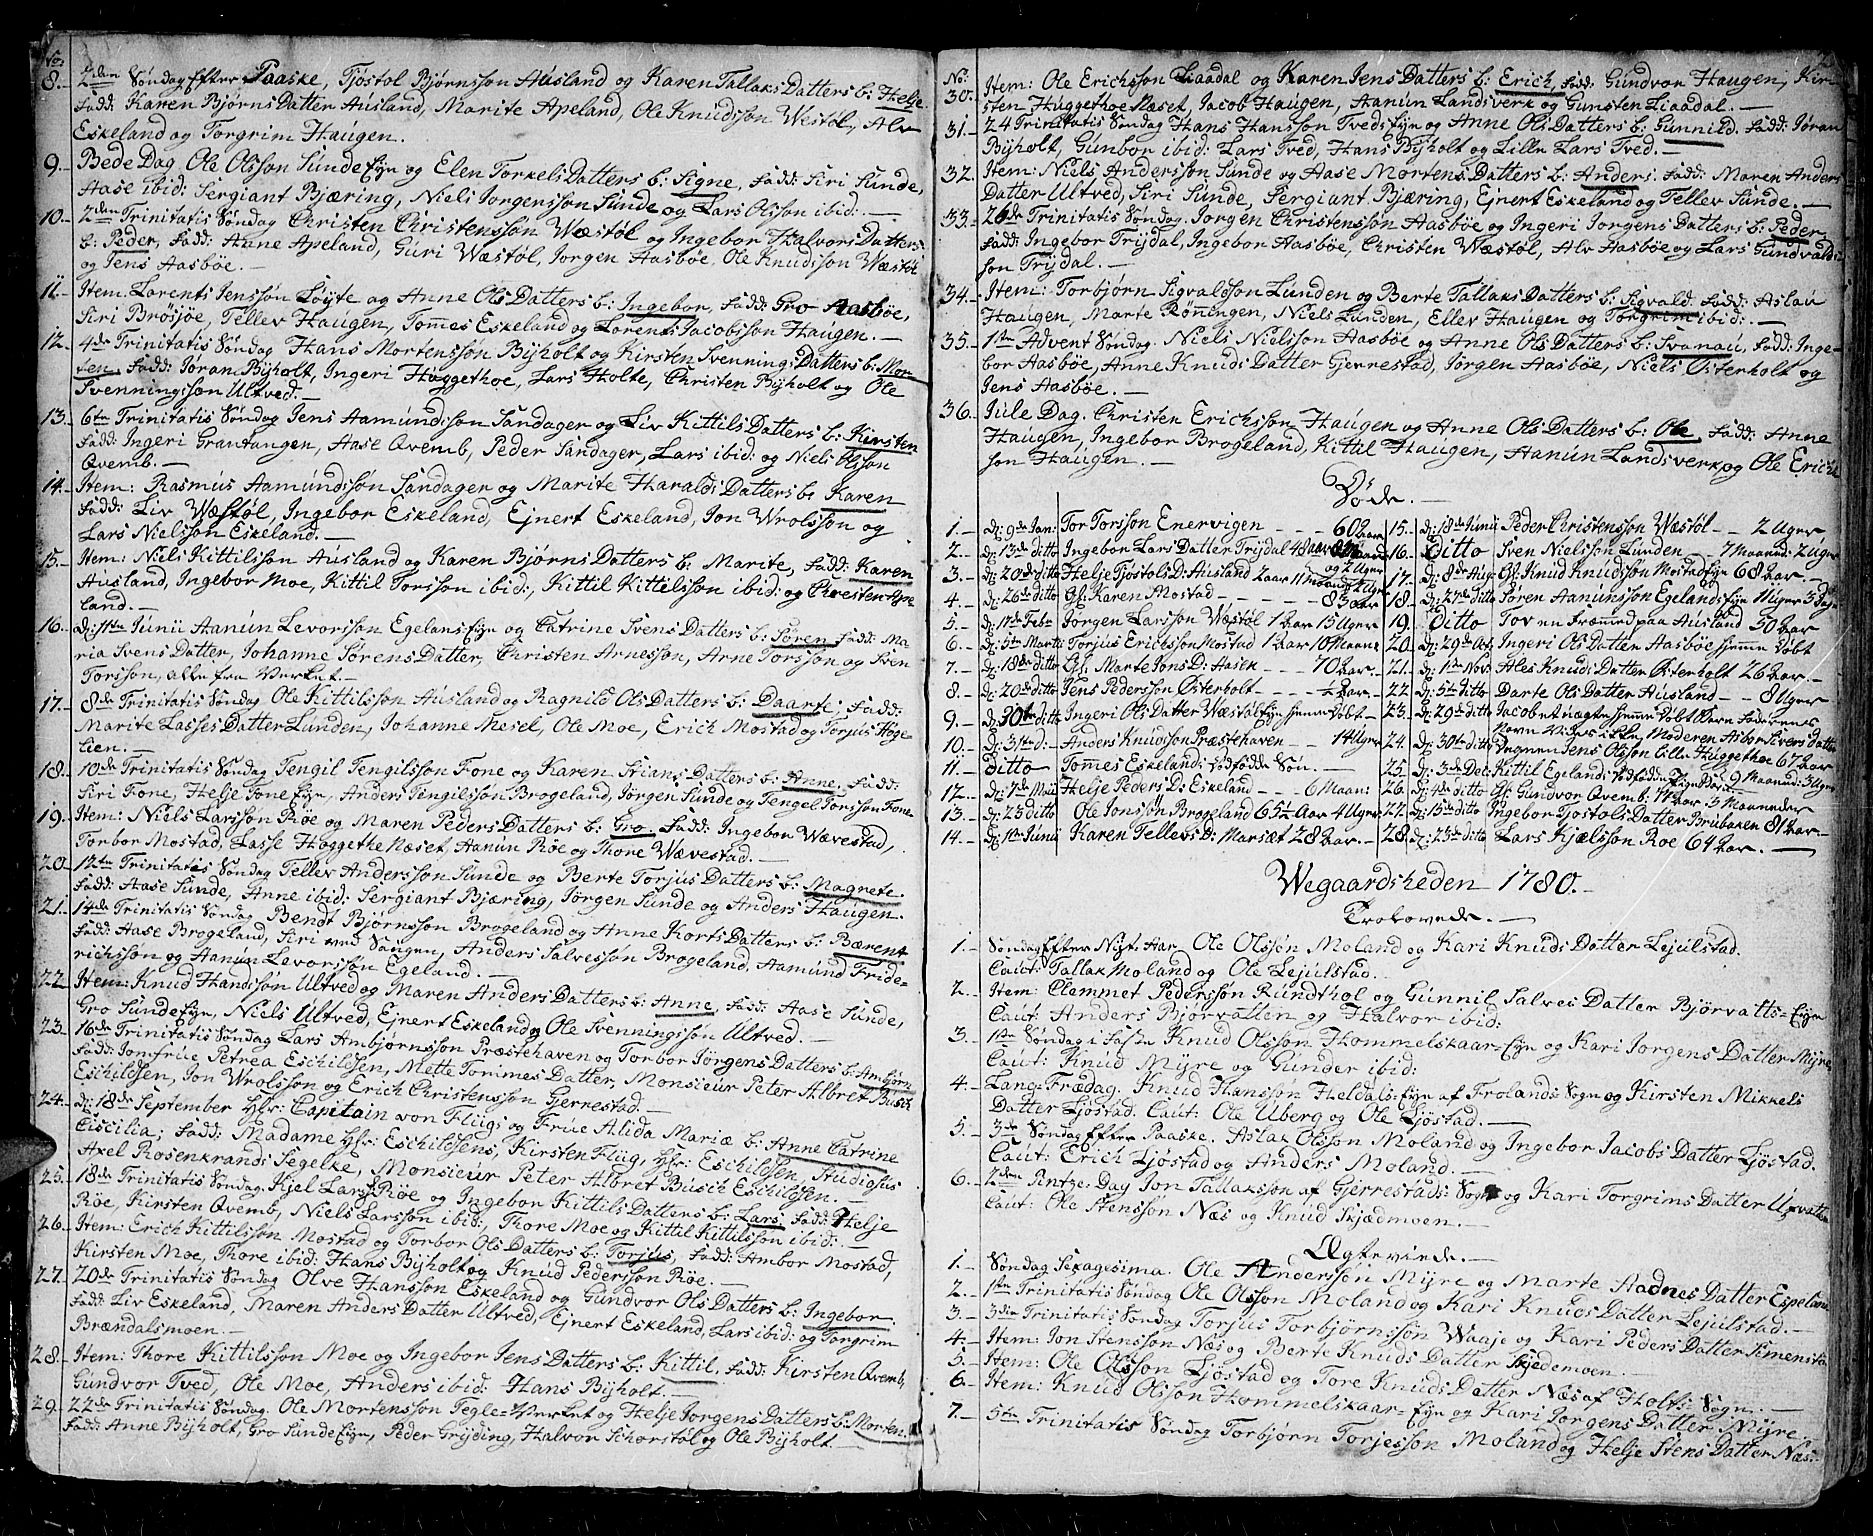 No:
8. 2den Søndag Efter Paaske, Tjøstol Bjørnssøn Ausland og Karen Tallaks Datters b: Helje
fadd: Karen Bjørns Datter Ausland, Marite Apeland, Ole Knudssøn Westøl, Alv
Eskeland og Torgrim Haugen.
9. Bede Dag Ole Olssøn Sunde Eyn og Elen Torkels Datters b: Signe, fadd: Siri Sunde,
Aase ibid: Sergiant Bjæring, Niels Jorgenssøn Sunde og Lars Olssøn ibid: —
10. 2den Trinitatis Søndag Christen Christenssøn Wæstøl og Ingebor Halvors Datters
b: Peder, fadd: Anne Apeland, Guri Wæstøl, Jorgen Aasbøe, Ole Knudssøn Wæstøl
og Jens Aasbøe. —
11. Item. Larents Jenssøn Løyte og Anne Ols Datters b: Ingebor, fadd: Gro Aasbøe,
Siri Brosjøe, Tellev Haugen, Tommes Eskeland og Lorents Jacobssøn Haugen. —
12. 4de Trinitatis Søndag Hans Mortenssøn Bijholt og Kirsten Svennings Datters b: Mor-
ten, fadd: Joran Bijholt, Ingeri Høggethoe, Lars Holte, Christen Bijholt og Ole
Svenningssøn Ultved. —
13. 6te Trinitatis Søndag Jens Aamundssøn Sandager og Liv Kittils Datters b: Kirsten
fadd: Ingeri Grantangen, Aase Qvemb, Peder Sandager, Lars ibid: og Niels Olssøn
Qvemb. —
14. Item: Rasmus Aamundssøn Sandager og Marite Haralds Datters b: Karen
fadd: Liv Wæstøl, Ingebor Eskeland, Ejnert Eskeland, Jon Wrolssøn og
Lars Nielssøn Eskeland. —
15. Item: Niels Kittilssøn Ausland og Karen Bjørns Datters b: Marite, fadd: Karen
Ausland, Ingebor Moe, Kittil Torssøn ibid: Kittil Kittilssøn ibid: og Christen Ape
land. —
16. dj: 11te Junii Aanun Levorssøn Egelans Eyn og Catrine Svens Datters b: Søren fadd: Ma-
ria Svens Datter, Johanne Sørens Datter, Christen Arnessøn, Arne Torssøn og Sven
Torssøn, alle fra Verket. —
17. 8de Trinitatis Søndag Ole Kittilssøn Ausland og Ragnild Ols Datters b: Daarte, fadd:
Marite Lasses Datter Lunden, Johanne Mesel, Ole Moe, Erich Mostad og Torjus Høge-
lien. —
18. 10de Trinitatis Søndag Tengil Tengilssøn Fone og Karen Stians Datters b: Anne, fadd:
Siri Fone, Helje Fone Eyn, Anders Tengilssøn Brogeland, Jørgen Sunde og Tengel Torssøn Fone
19. Item: Niels Larssøn Røe og Maren Peders Datters b: Gro, fadd: Ingebor Wævestad,
Torbor Mostad, Lasse Høggethe Næset, Aanun Røe og Thore Wævestad. —
20. 12te Trinitatis Søndag Tellev Anderssøn Sunde og Berte Torjus Datters b: Magnete.
fadd: Aase Sunde, Anne ibid: Sergiant Bjæring, Jørgen Sunde og Anders Haugen.
21. 14de Trinitatis Søndag Bendt Bjørnssøn Brogeland og Anne Korts Datters b: Bærent
fadd: Aase Brogeland, Siri ved Saugen, Anders Salvessøn Brogeland, Aamund Fride-
richssøn og Aanun Levorssøn Egeland. —
22. Item: Knud Hanssøn Ultved og Maren Anders Datters b: Anne, fadd: Aase Sunde,
Gro Sunde Eyn, Niels Ultved, Ejnert Eskeland og Ole Svenningssøn Ultved. —
23. 16de Trinitatis Søndag Lars Ambjørnssøn Præstehaven og Torbor Jørgens Datters b: Ambjørn
fadd: Jomfrue Petrea Eschildsen, Mette Tommes Datter, Monsieur Peter Albret Busch
Eschildsen, Jon Wrolssøn og Erich Christenssøn Gjerrestad. —
24. dj: 18de September Hr: Capitain von Flüg og Frue Alida Mariæ b: Anne Catrine
Ciscilia; fadd: Madame Hr: Eschildsens, Kirsten Flüg, Hr: Eschildsen, Studiosus
Axel Rosenkrands Segelke, Monsieur Peter Albret Busch Eschildsen.
25. 18de Trinitatis Søndag. Kjel Larssøn Røe og Ingebor Kittils Datters b: Lars. fadd: Helje
Røe, Kirsten Qvemb, Niels Larssøn ibid:, Thore Moe og Kittil Kittilssøn ibid: —
26. Item: Erich Kittilssøn Mostad og Torbor Ols Datters b: Torjus, fadd: Ambor Mostad,
Kirsten Moe, Thore ibid: Hans Bijholt og Knud Pederssøn Røe. —
27. 20de Trinitatis Søndag Olve Hanssøn Eskeland og Gundvor Ols Datters b: Ingebor
fadd: Liv Eskeland, Maren Anders Datter Ultved, Ejnert Eskeland, Lars ibid: og Torgrim
Brændalsmoen. —
28. Item: Thore Kittilssøn Moe og Ingebor Jens Datters b: Kittil, fadd: Kirsten Qvemb,
Gundvor Tved, Ole Moe, Anders ibid: Hans Bijholt. —
29. 22de Trinitatis Søndag. Ole Mortenssøn Tegle-Verket og Helje Jorgens Datters b: Morten.
fadd: Anne Bijholt, Gro Sunde Eyn, Peder Gryting, Halvor Schorstøl og Ole Bijholt. —
No:
30. Item: Ole Erichssøn Liaadal og Karen Jens Datters b: Erich, fadd: Gundvor Haugen, Kir
sten Huggethoe Næset, Jacob Haugen, Aanun Landsverk og Gunsten Liaadal. —
31. 24 Trinitatis Søndag Hans Hanssøn Tveds Eyn og Anne Ols Datters b: Gunnild. fadd: Joran
Bijholt, Gunbor ibid: Lars Tved, Hans Bijholt og Lille Lars Tved. —
32. Item: Niels Anderssøn Sunde og Aase Mortens Datters b: Anders. fadd: Maren Anders
Datter Ultved, Siri Sunde, Sergiant Bjæring, Ejnert Eskeland og Tellev Sunde. —
33. 26de Trinitatis Søndag. Jorgen Christenssøn Aasbøe og Ingeri Jorgens Datters b: Peder
fadd: Ingebor Trijdal, Ingebor Aasbøe, Christen Wæstøl, Alv Aasbøe og Lars Gundvalds
søn Trijdal. —
34. Item: Torbjørn Sigvaldssøn Lunden og Berte Tallaks Datters b: Sigvald. fadd: Aslau
Haugen, Marte Rønningen, Niels Lunden, Ellev Haugen og Torgrim ibid: —
35. 1ste Advent Søndag. Niels Nielssøn Aasbøe og Anne Ols Datters b: Svanau, fadd: Inge-
bor Aasbøe, Anne Knuds Datter Gjerrestad, Jørgen Aasbøe, Niels Østerholt og
Jens Aasbøe. —
36. Jule Dag. Christen Erichssøn Haugen og Anne Ols Datters b: Ole, fadd: Anne
Haugen, Ingebor Brogeland, Kittil Haugen, Aanun Landsverk og Ole Erichs
søn Haugen. —
Døde. —
1. dj 9de Jan: Tor Torssøn Enervigen - - - 60 Aar
2. dj: 13de ditto Ingebor Lars Datter Trijdal 48 Aar
og 2 Uger
3. dj: 20de ditto Helje Tjøstols D: Ausland 2 Aar 11 Maaned 2 Uger
4. dj: 26de ditto Gl: Karen Mostad - - - 83 Aar
5. dj: 17de Febr: Jorgen Larssøn Wæstøl 1 Aar 15 Uger
6. dj: 5te Marti Torjus Erichssøn Mostad 1 Aar 10 Maaned
7. dj: 18de ditto Gl: Marte Jons D: Aasen - - 70 Aar. —
8. dj: 20de ditto Jens Pederssøn Østerholt - - - ½ Aar. —
9. dj 30te ditto Ingeri Ols Datter Wæstøls Eyn hjemme Døbt —
10. dj: 31te d: Anders Knudssøn Præstehaven - - 14 Uger
11. Ditto Tommes Eskelands Dødfødde Søn. —
12. dj: 7de Maii Helje Peders D: Eskeland — 6 Maan:
13. dj: 23 ditto Ole Jonssøn Brogeland 65½ Aar 4 Uger
14. dj: 1te Junii Karen Tellevs D: Marsæt 28 Aar. —
15. dj: 18de Junii Peder Christenssøn Wæstøl — 2 Uger
16. Ditto Sven Nielssøn Lunden — 7 Maaned: 2 Uger
17. dj: 8de Aug: Gl: Knud Knudssøn Mostad Eyn 68 Aar —
18. dj: 27de ditto Søren Aanunssøn Egelands Eyn 11 Uger 3 Dage
19. Ditto Tov en Fræmmed paa Ausland 50 Aar
20. dj: 29de Oct: Ingeri Ols Datter Aasbøe hjemme Døbt
21. dj: 1te Nov: Ales Knuds Datter Østerholt 26 Aar. —
22. dj: 5te ditto Darte Ols Datter Ausland — 8 Uger
23. dj: 29de ditto Jacob et uægte hjemme Døbt Barn faderens
Navn vides ikke, Moderen Asbor Sivers Datter
24. dj: 30te ditto Degnen Jens Olssøn Lille Huggethoe 67 Aar
25. dj: 3de Dec: Kittil Egelands
26. dj: 4de ditto Gl: Gundvor Qvemb: 77 Aar 5 Maaneder
27. dj: 15de ditto Ingebor Tjøstols Datter Brubaken 81 Aar. —
28. dj: 23de ditto Lars Kjælssøn Roe 64 Aar. —
Wegaardsheden 1780. —
Trolovede. —
1. Søndag Efter Nyt-Aar- Ole Olssøn Moland og Kari Knuds Datter Lejulstad.
Caut: Tallak Moland og Ole Lejulstad.
2. Item: Clemmet Pederssøn Rundthol og Gunnil Salves Datter Bjørvatts-Eyn
Caut: Anders Bjorvatten og Halvor ibid:
3. 1ste Søndag i Faste Knud Olssøn Hommelskaar-Eyn og Kari Jorgens Datter Mijre,
Caut: Knud Mijre og Gunder ibid:
4. Lang-Frædag. Knud Hanssøn Heldals-Eyn af Frolands Sogn og Kirsten Mikkels
Datter Ljøstad. Caut: Ole Uberg og Ole Ljøstad. —
5. 3de Søndag Efter Paaske. Aslak Olssøn Moland og Ingebor Jacobs Datter Ljøstad.
Caut: Erich Ljøstad og Anders Moland. —
6. 2den Pintze-Dag Jon Tallakssøn af Gjerrestads: Sogn og Kari Torgrims Datter Upvatten
Caut: Ole Stenssøn Næs og Knud Skjædmoen. —
Ægteviede. —
1. Søndag Sexagesima. Ole Anderssøn Mijre og Marte Aadnes Datter Espeland
2. 1ste Trinitatis Søndag Ole Olssøn Moland og Kari Knuds Datter Lejulstad.
3. 3die Trinitatis Søndag Torjus Torbjørnssøn Waaje og Kari Peders Datter Simenstad
4. Item: Jon Stenssøn Næs og Berte Knuds Datter Skjedemoen. —
5. Item: Ole Olssøn Ljøstad og Tore Knuds Datter Næs af Holts: Sogn. —
6. Item: Knud Olssøn Hommelskaar-Eyn og Kari Jorgens Datter Mijre.
7. 5te Trinitatis Søndag Torbjørn Torjessøn Moland og Helje Stens Datter Næs: —